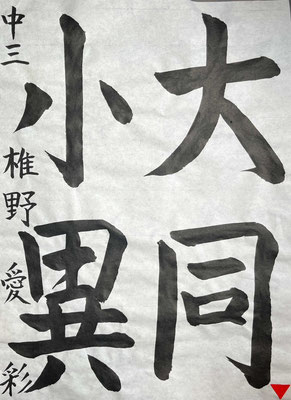 大同
小異
中三 椎野愛彩